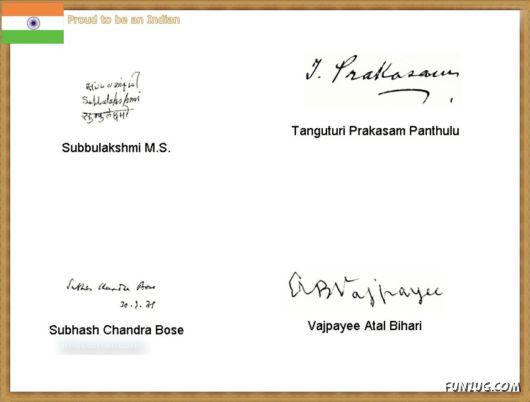 Proud to be an Indian
Subbulakshmi
Subbulakshmi M.S.
T. Prakasam
Tanguturi Prakasam Panthulu
Subhas Chandra Bose
Subhash Chandra Bose
ABVajpayee
Vajpayee Atal Bihari
FUNIUG.COM